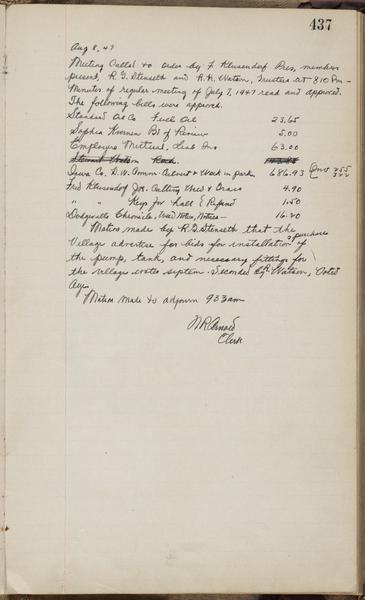 437
Aug 8, 47
Meeting Called to order by F Klusendorf Pres, members
present, R. G. Stenseth and R. H. Watson, Trustees at 8:10 Pm -
Minutes of regular meeting of July 7, 1947 read and approved.
The following bills were approved.
Standard Oil Co Fuel Oil 23.65
Sophia Bd of Review 5.00
Employers Mutual, Liab Ins 63.00
Iowa Co. H.W. Comm. Culvert & Work in park 686.93
Fred Klusendorf Jr. Cutting Weed & Grass 4.90
" " Keys for hall & Repair 1.50
Dodgeville Chronicle, Weed Notes, Notices - 16.20
Motion made by R. G. Stenseth that the
Village advertise for bids for installation & purchase of
the pump, tank, and necessary fittings for
the village water system. Seconded by R. Watson, Voted
Aye.
Motion made to adjourn 9:33 am
W R Arnold
Clerk